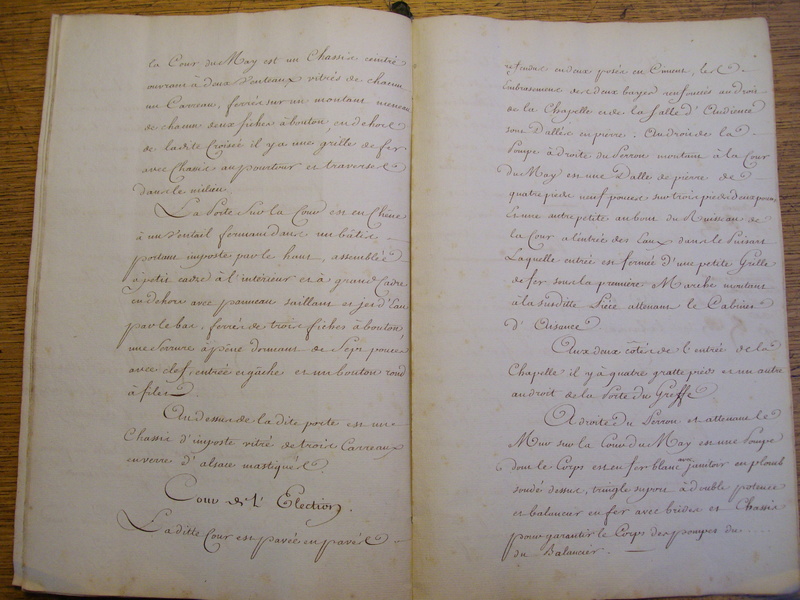 la Cour du May est un Chassis ceintré
ouvrant à deux Venteaux vitrés de chacun
un Carreau, ferrés sur un montant
de chacun deux fiches à bouton, en dehors
de la dite Croisée il y a une grille de fer
avec Chassis au pourtour et traverses
dans le milieu.
La Porte sur la Cour est en Chêne
à un Ventail fermant dans un bâtis
portant imposte par le haut, assemblé
à petit cadre à l'intérieur et à grand Cadre
en dehors avec panneau saillant et jet d'Eau
par le bas, ferrée de trois fiches à bouton,
une Serrure à pêne dormant de Sept pouces
avec clef, entrée et gâche et un bouton rond
à filet.
Au dessus de la dite porte est un
Chassis d'imposte vitré de trois Carreaux
en verre d'alsace mastiqués.
Cour de l'Election.
La ditte Cour est pavée en pavés
refendus en deux posés en Ciment, les
Embrasements des deux bayes renfoncées au droit
de la Chapelle et de la Salle d'Audience
sont Dallés en pierre; Au droit de la
Pompe à droite du Perron montant à la Cour
du May est une Dalle de pierre de
quatre pieds neuf pouces sur trois pieds deux pouces
Et une autre petite au bout du Ruisseau de
la Cour à l'entrée des Eaux dans le Puisart
Laquelle entrée est fermée d'une petite Grille
de fer sous la premiere Marche montant
à la susditte Pièce attenant le Cabinet
d'Aisance
Aux deux côtés de l'entrée de la
Chapelle il y a quatre gratte pieds et un autre
au droit de la Porte du Greffe
A droite du Perron et attenant le
Mur sur la Cour du May est une Pompe
dont le Corps est en fer blanc avec janitoir en plomb
soudé dessus, tringle support à double potence
et balancier en fer avec brides et Chassis
pour garantir le Corps des pompes du ....
du Balancier.